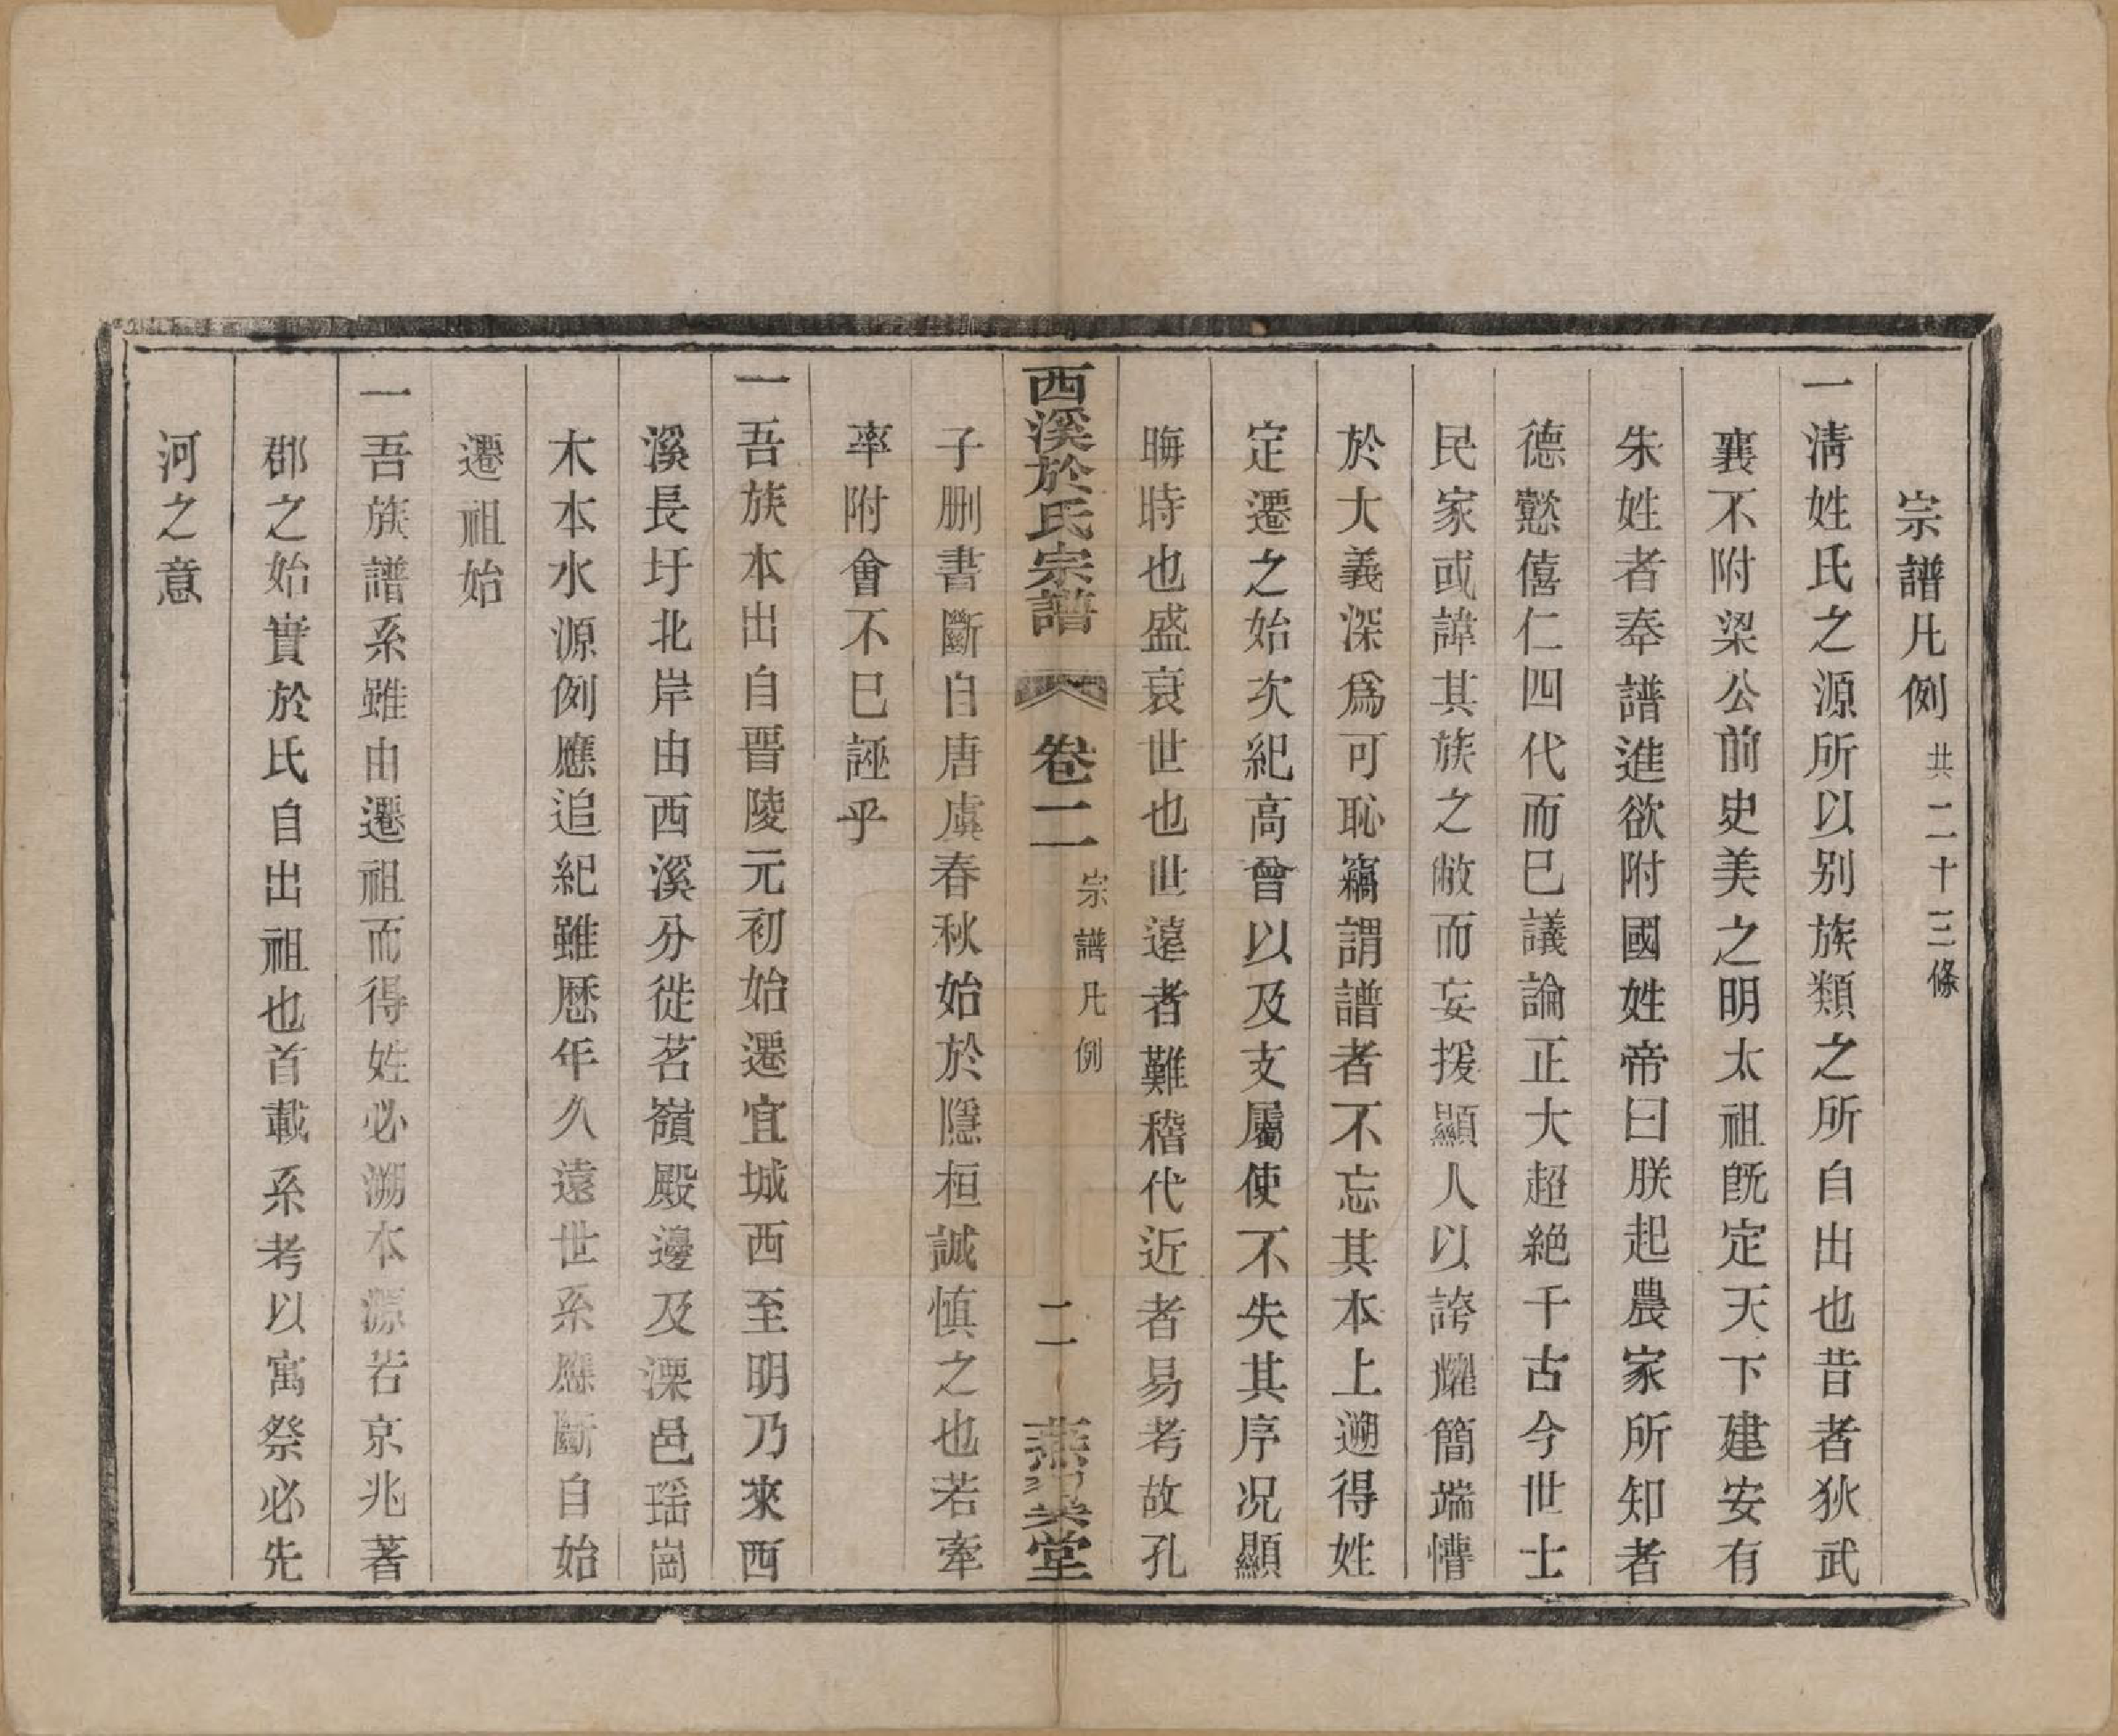 宗譜凡例共二十三條
一淸姓氏之源所以别族類之所自出也昔者狄武
襄不附梁公前史美之明太祖旣定天下建安有
朱姓者奉譜進欲附國姓帝曰朕起農家所知者
德懿僖仁四代而已議論正大超絶千古今世士
民家或諱其族之敝而妄援顯人以誇耀簡端懵
於大義深爲可恥竊謂譜者不忘其本上遡得姓
定遷之始次紀高曾以及支屬使不失其序况顯
晦時也盛衰世也世遠者難稽代近者易考故孔
西溪於氏宗譜 卷二 宗譜凡例 二 堂
子删書斷自唐虞春秋始於隱桓誠愼之也若牽
率附會不已誣乎
一吾族本出自晋陵元初始遷宜城西至明乃來西
溪長圩北岸由西溪分徙茗嶺殿邊及溧邑瑶崗
木本水源例應追紀雖歷年久遠世系應斷自始
遷祖始
一吾族譜系雖由遷祖而得姓必溯本源若京兆著
郡之始實於氏自出祖也首載系考以寓祭必先
河之意